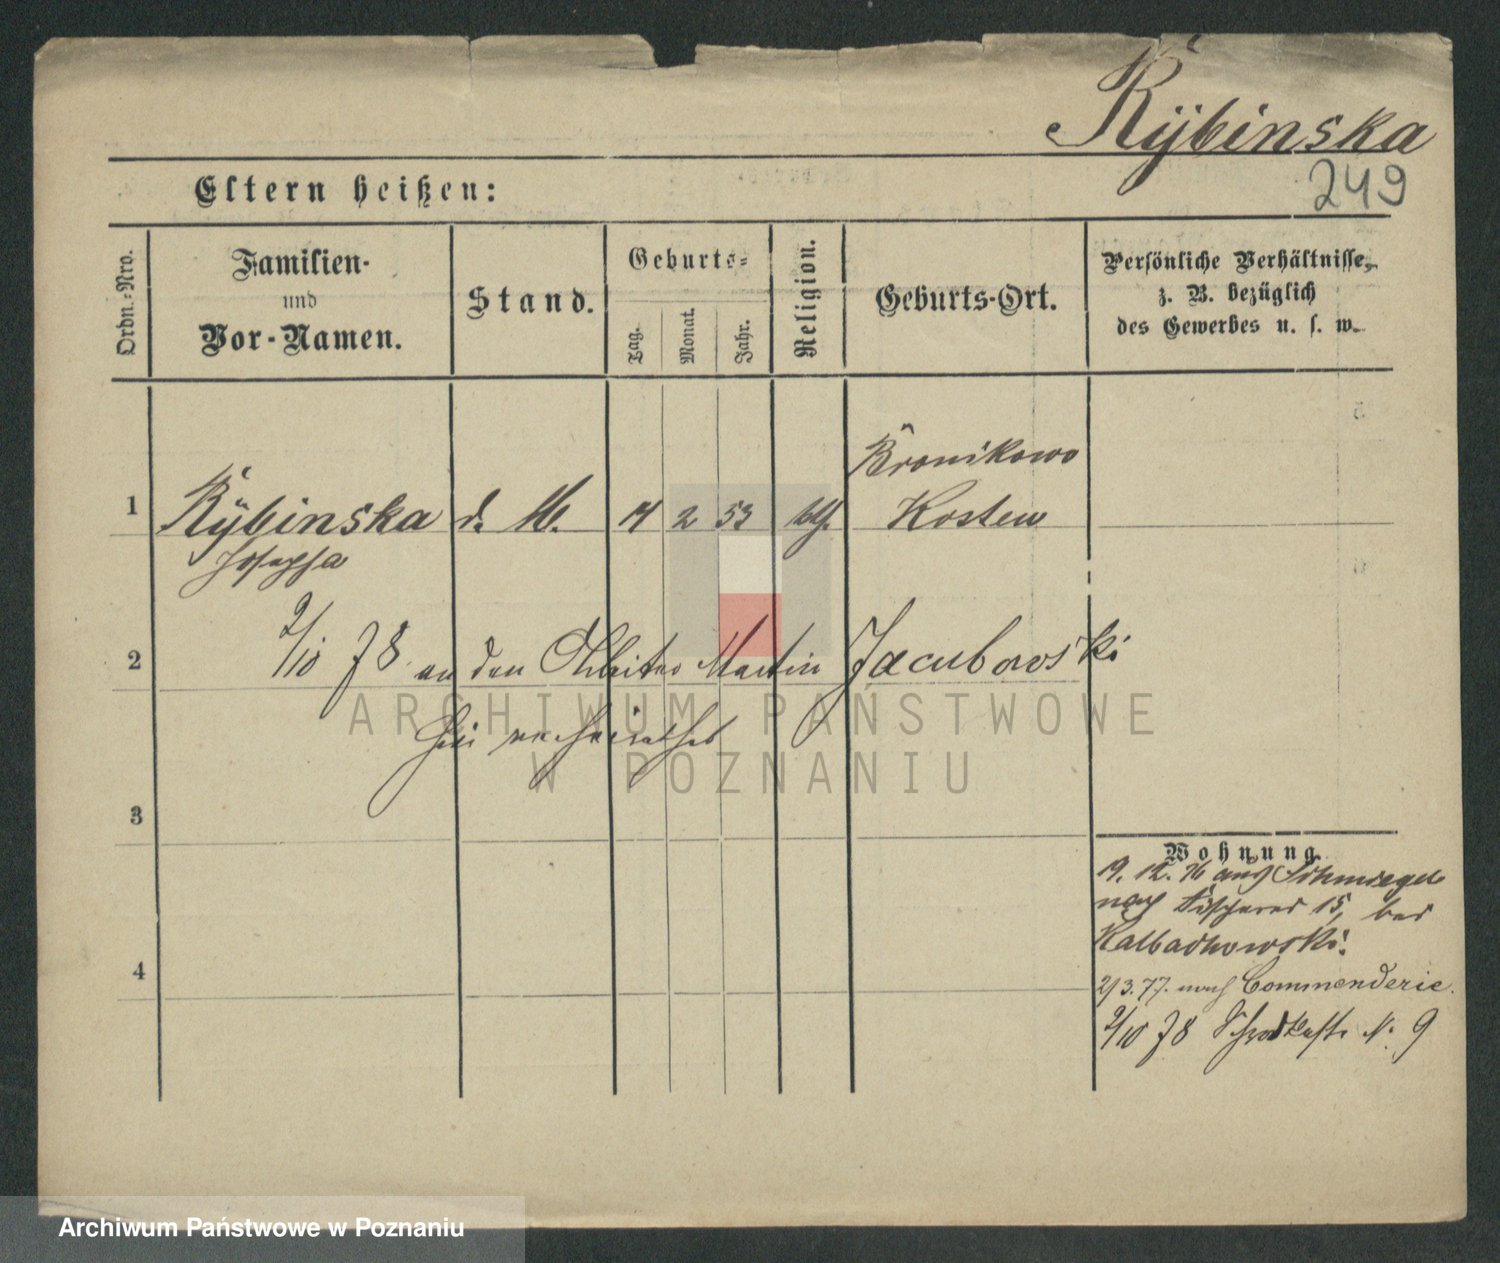 Rÿbinska
249
Eltern heißen:
Ordn.-Nro.
Familien-
und
Vor-Namen.
Stand.
Geburts-
Tag.
Monat.
Jahr.
Religion.
Geburts-Ort.
Persönliche Verhältnisse,
z. B. bezüglich
des Gewerbes u. s. w.
Bronikowo
1 Rÿbinska d. M. 14 2 53 kth. Kosten
Josepha
2 2/10 78 an den Arbeiter Martin Jacubowski
hier verheirathet
3
Wohnung.
19. 12. 76 aus Schmiegel
nach Fischerei 15, bei
Kalbachowski.
4
2/3. 77. nach Commenderie.
2/10 78 N. 9
ARCHIWUM PAŃSTWOWE
W POZNANIU
Archiwum Państwowe w Poznaniu